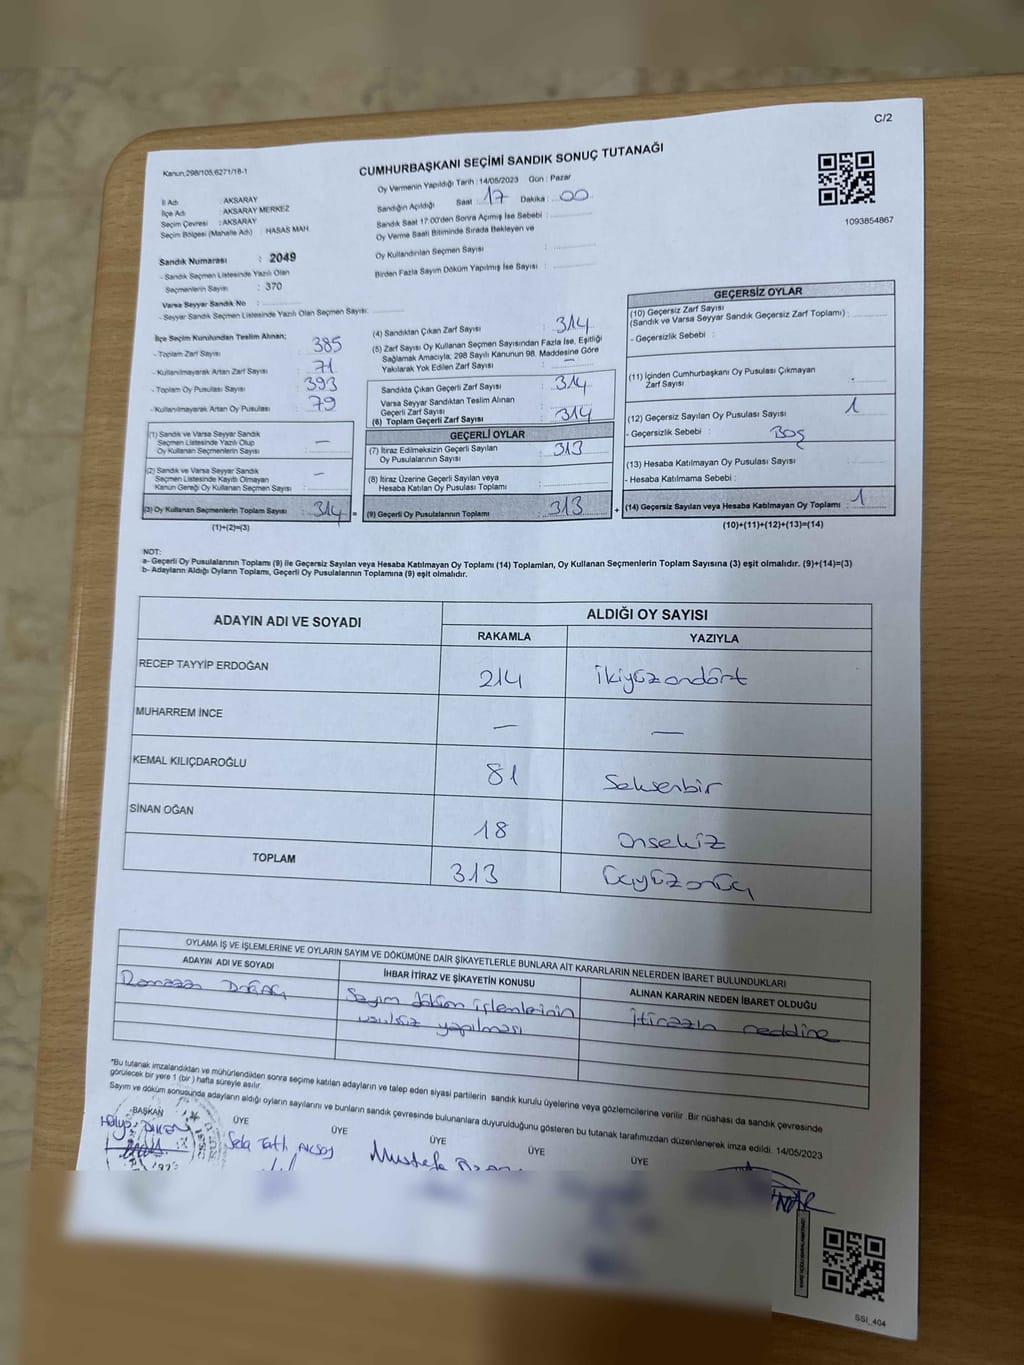 C/2
Kanun,298/105,6271/18-1
CUMHURBAŞKANI SEÇİMİ SANDIK SONUÇ TUTANAĞI
Oy Vermenin Yapıldığı Tarih : 14/05/2023 Gün : Pazar
Sandığın Açıldığı Saat : 17 Dakika : 00
Sandık Saat 17:00'den Sonra Açımış İse Sebebi :
Oy Verme Saati Bitiminde Sırada Bekleyen ve
Oy Kullandırılan Seçmen Sayısı :
Birden Fazla Sayım Döküm Yapılmış İse Sayısı :
1093854867
İl Adı : AKSARAY
İlçe Adı : AKSARAY MERKEZ
Seçim Çevresi : AKSARAY
Seçim Bölgesi (Mahalle Adı) : HASAS MAH.
Sandık Numarası : 2049
- Sandık Seçmen Listesinde Yazılı Olan
Seçmenlerin Sayısı : 370
Varsa Seyyar Sandık No :
- Seyyar Sandık Seçmen Listesinde Yazılı Olan Seçmen Sayısı:
İlçe Seçim Kurulundan Teslim Alınan;
- Toplam Zarf Sayısı : 385
- Kullanılmayarak Artan Zarf Sayısı : 71
- Toplam Oy Pusulası Sayısı : 393
- Kullanılmayarak Artan Oy Pusulası : 79
(1) Sandık ve Varsa Seyyar Sandık
Seçmen Listesinde Yazılı Olup
Oy Kullanan Seçmenlerin Sayısı : —
(2) Sandık ve Varsa Seyyar Sandık
Seçmen Listesinde Kayıtlı Olmayan
Kanun Gereği Oy Kullanan Seçmen Sayısı : —
(3) Oy Kullanan Seçmenlerin Toplam Sayısı : 314
(1)+(2)=(3)
(4) Sandıktan Çıkan Zarf Sayısı : 314
(5) Zarf Sayısı Oy Kullanan Seçmen Sayısından Fazla İse, Eşitliği
Sağlamak Amacıyla, 298 Sayılı Kanunun 98. Maddesine Göre
Yakılarak Yok Edilen Zarf Sayısı : —
Sandıkta Çıkan Geçerli Zarf Sayısı : 314
Varsa Seyyar Sandıktan Teslim Alınan
Geçerli Zarf Sayısı
(6) Toplam Geçerli Zarf Sayısı : 314
GEÇERLİ OYLAR
(7) İtiraz Edilmeksizin Geçerli Sayılan
Oy Pusulalarının Sayısı : 313
(8) İtiraz Üzerine Geçerli Sayılan veya
Hesaba Katılan Oy Pusulası Toplamı :
(9) Geçerli Oy Pusulalarının Toplamı : 313
GEÇERSİZ OYLAR
(10) Geçersiz Zarf Sayısı
(Sandık ve Varsa Seyyar Sandık Geçersiz Zarf Toplamı) :
- Geçersizlik Sebebi :
(11) İçinden Cumhurbaşkanı Oy Pusulası Çıkmayan
Zarf Sayısı :
(12) Geçersiz Sayılan Oy Pusulası Sayısı : 1
- Geçersizlik Sebebi : Boş
(13) Hesaba Katılmayan Oy Pusulası Sayısı :
- Hesaba Katılmama Sebebi :
(14) Geçersiz Sayılan veya Hesaba Katılmayan Oy Toplamı : 1
(10)+(11)+(12)+(13)=(14)
NOT:
a- Geçerli Oy Pusulalarının Toplamı (9) ile Geçersiz Sayılan veya Hesaba Katılmayan Oy Toplamı (14) Toplamları, Oy Kullanan Seçmenlerin Toplam Sayısına (3) eşit olmalıdır. (9)+(14)=(3)
b- Adayların Aldığı Oyların Toplamı, Geçerli Oy Pusulalarının Toplamına (9) eşit olmalıdır.
ADAYIN ADI VE SOYADI ALDIĞI OY SAYISI
RAKAMLA YAZIYLA
RECEP TAYYİP ERDOĞAN 214 ikiyüzondört
MUHARREM İNCE — —
KEMAL KILIÇDAROĞLU 81 Seksenbir
SİNAN OĞAN 18 onsekiz
TOPLAM 313 üçyüzonüç
OYLAMA İŞ VE İŞLEMLERİNE VE OYLARIN SAYIM VE DÖKÜMÜNE DAİR ŞİKAYETLERLE BUNLARA AİT KARARLARIN NELERDEN İBARET BULUNDUKLARI
ADAYIN ADI VE SOYADI İHBAR İTİRAZ VE ŞİKAYETİN KONUSU ALINAN KARARIN NEDEN İBARET OLDUĞU
Ramazan Sayım döküm işlemlerinin itirazın reddine
usulsüz yapılması
*Bu tutanak imzalandıktan ve mühürlendikten sonra seçime katılan adayların ve talep eden siyasi partilerin sandık kurulu üyelerine veya gözlemcilerine verilir. Bir nüshası da sandık çevresinde
görülecek bir yere 1 (bir ) hafta süreyle asılır.
Sayım ve döküm sonucunda adayların aldığı oyların sayılarını ve bunların sandık çevresinde bulunanlara duyurulduğunu gösteren bu tutanak tarafımızdan düzenlenerek imza edildi. 14/05/2023
BAŞKAN ÜYE ÜYE ÜYE ÜYE ÜYE
Mustafa
SSI_404